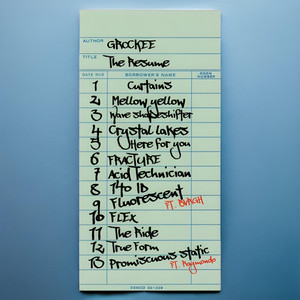 AUTHOR GROCKEE
TITLE The Resume
DATE DUE BORROWER'S NAME ROOM NUMBER
1 Curtains
2 Mellow yellow
3 Rare shapeshifter
4 Crystal lakes
5 Here for you
6 FRACTURE
7 Acid Technician
8 140 ID
9 Fluorescent FT. BURGH
10 FLEX
11 The Ride
12 True Form
13 Promiscuous static FT. Raymondo
DEMCO